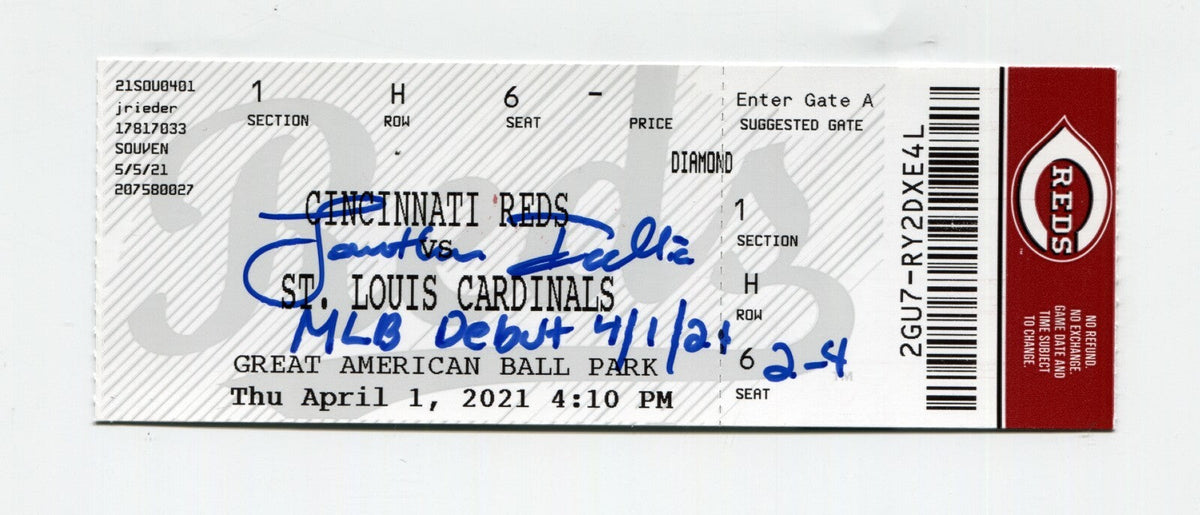 21SOU0401
jrieder
17817033
SOUVEN
5/5/21
207580027
1 H 6 -
SECTION ROW SEAT PRICE
DIAMOND
CINCINNATI REDS
VS
ST. LOUIS CARDINALS
Jonathan India
MLB Debut 4/1/21
2-4
GREAT AMERICAN BALL PARK
Thu April 1, 2021 4:10 PM
Enter Gate A
SUGGESTED GATE
1
SECTION
H
ROW
6
SEAT
2GU7-RY2DXE4L
REDS
NO REFUND.
NO EXCHANGE.
GAME DATE AND
TIME SUBJECT
TO CHANGE.
Reds